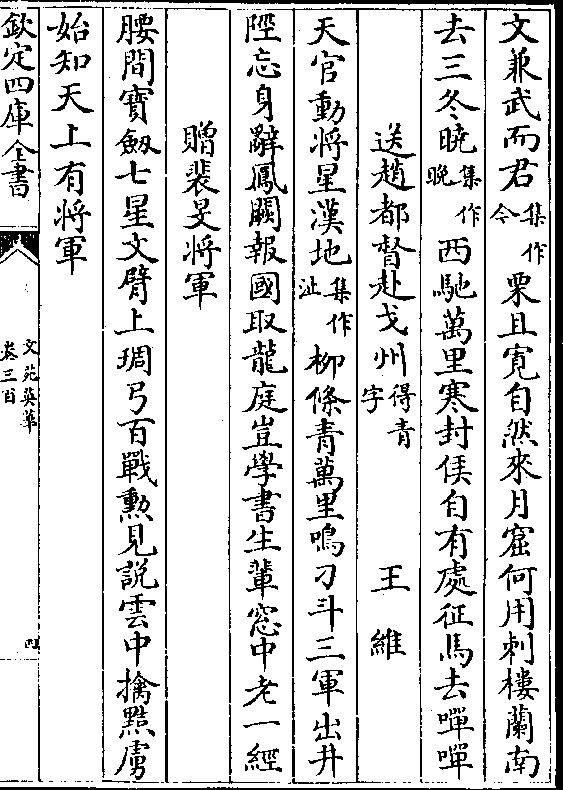 文兼武而君集作令栗且寛自然來月窟何用刺樓蘭南
去三冬曉集作晚西馳萬里寒封侯自有處征馬去嘽嘽
送趙都督赴戈州得青字 王維
天官動將星漢地集作沚柳條青萬里鳴刁斗三軍出井
陘忘身辭鳳闕報國取龍庭豈學書生輩窓中老一經
贈裴旻將軍
腰間寶劒七星文臂上琱弓百戰勲見說雲中擒黠虜
始知天上有將軍
欽定四庫全書
文苑英華
卷三百
四